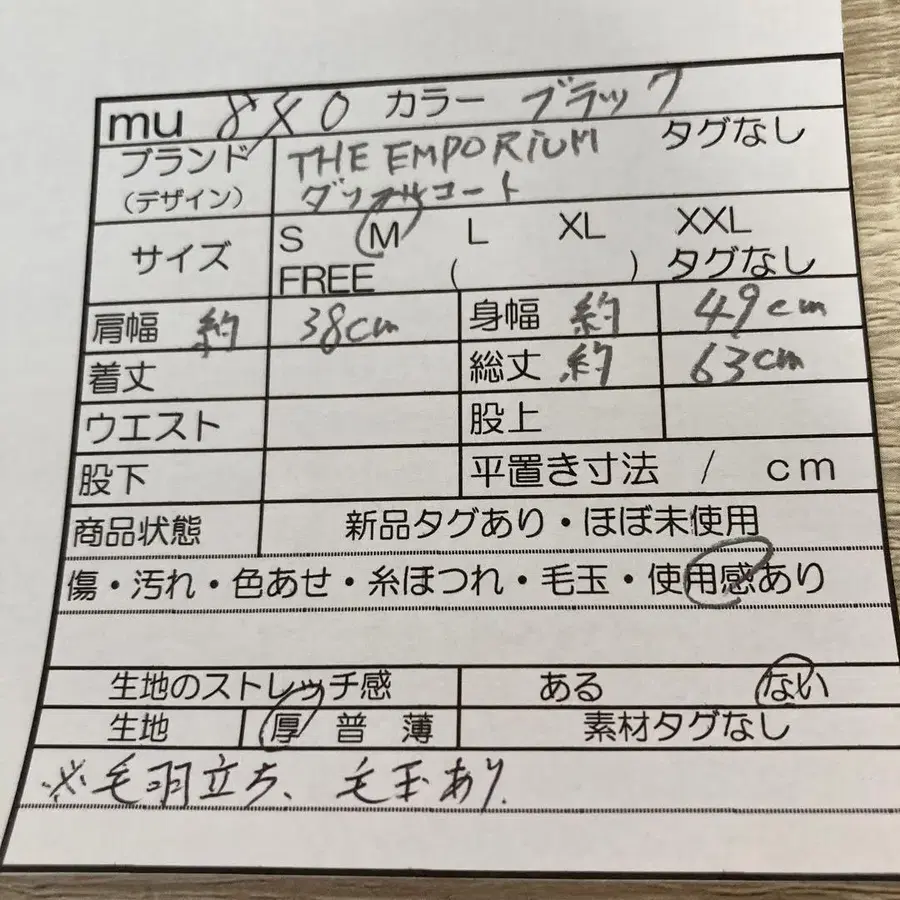 mu 840 カラー ブラック
ブランド THE EMPORIUM タグなし
(デザイン) ダッフルコート
サイズ S M L XL XXL
FREE ( ) タグなし
肩幅 約 38cm 身幅 約 49cm
着丈 総丈 約 63cm
ウエスト 股上
股下 平置き寸法 / cm
商品状態 新品タグあり・ほぼ未使用
傷・汚れ・色あせ・糸ほつれ・毛玉・使用感あり
生地のストレッチ感 ある ない
生地 厚 普 薄 素材タグなし
※毛羽立ち、毛玉あり.